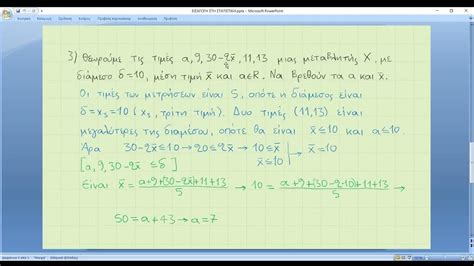 ΕΙΣΑΓΩΓΗ ΣΤΗ ΣΤΑΤΙΣΤΙΚΗ.pptx - Microsoft PowerPoint
3) Θεωρούμε τις τιμές α, 9, 30-2x̄, 11, 13 μιας μεταβλητής X, με
διάμεσο δ=10, μέση τιμή x̄ και α∈R. Να βρεθούν τα α και x̄.
Οι τιμές των μετρήσεων είναι 5, οπότε η διάμεσος είναι
δ=x₃=10 (x₃, τρίτη τιμή). Δυο τιμές (11,13) είναι
μεγαλύτερες της διαμέσου, οπότε θα είναι x̄≤10 και α≤10.
Άρα 30-2x̄≤10→20≤2x̄→10≤x̄ → x̄=10
x̄≤10
[α, 9, 30-2x̄ ≤δ]
Είναι x̄ = α+9+(30-2x̄)+11+13 / 5 → 10 = α+9+(30-2·10)+11+13 / 5 →
50=α+43→α=7